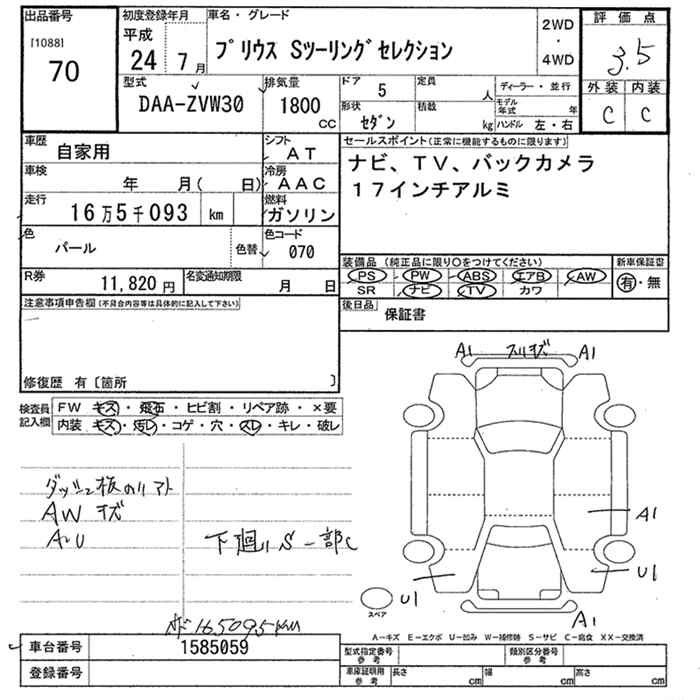 出品番号
[1088]
70
初度登録年月
平成
24 7月
車名・グレード
プリウス Sツーリングセレクション
2WD
・
4WD
評価点
3.5
外装 内装
C C
型式
DAA-ZVW30
排気量
1800
CC
ドア 5
定員 人
形状
セダン
積載 kg
ディーラー・並行
モデル年式 年
ハンドル 左・右
車歴
自家用
シフト
AT
車検
年 月( 日)
冷房
AAC
走行
16万5千093 km
燃料
ガソリン
色
パール
色替
色コード
070
R券
11,820円
名変通知期限
月 日
セールスポイント(正常に機能するものに限ります)
ナビ、TV、バックカメラ
17インチアルミ
装備品 (純正品に限り○をつけてください)
PS PW ABS エアB AW
SR ナビ TV カワ
新車保証書
有・無
後日品
保証書
注意事項申告欄 (不具合内容等は具体的に記入して下さい)
修復歴 有 [箇所 ]
検査員記入欄
FW キズ・飛石・ヒビ割・リペア跡・×要
内装 キズ・汚レ・コゲ・穴・スレ・キレ・破レ
AW キズ
A2U
下廻りS一部C
A1 スリキズ A1
A1
U1
U1
A1
スペア
A-キズ E-エクボ U-凹み W-補修跡 S-サビ C-腐食 XX-交換済
165095km
車台番号
1585059
登録番号
型式指定番号
参考
類別区分番号
参考
車庫証明用
参考
長さ cm
幅 cm
高さ cm